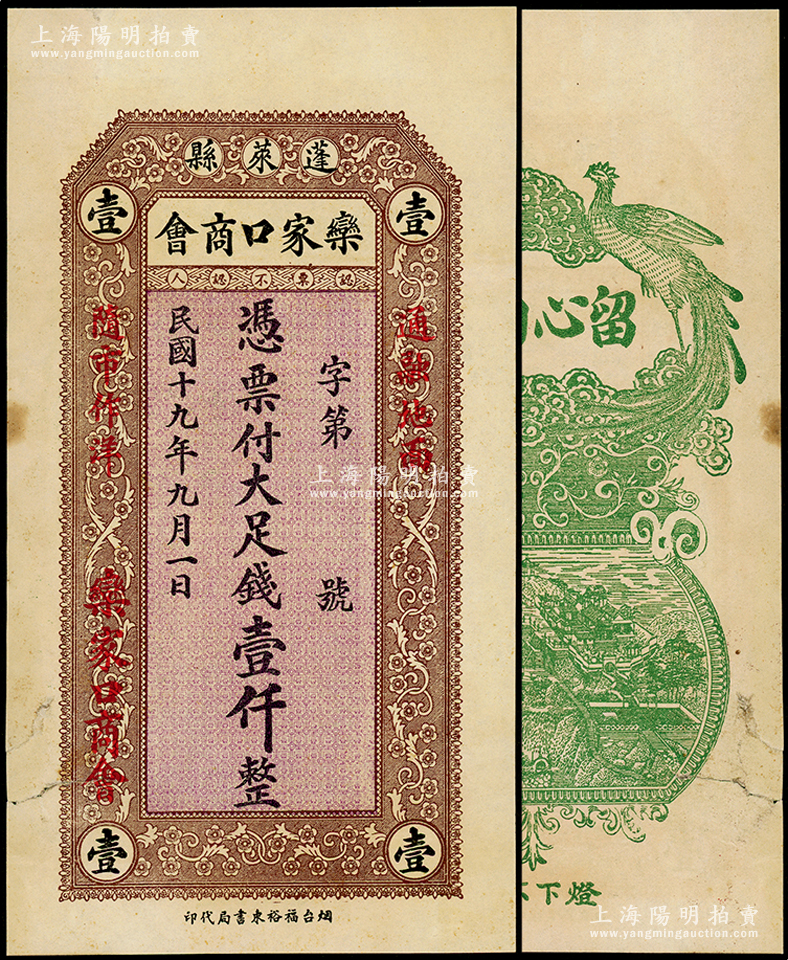 上海陽明拍賣
www.yangmingauction.com
蓬萊縣
壹
壹
欒家口商會
認票不認人
通融地面
字第 號
憑票付大足錢壹仟整
民國十九年九月一日
隨市作洋
欒家口商會
壹
壹
烟台福裕東書局代印
上海陽明拍賣
www.yangmingauction.com
留心
燈下
上海陽明拍賣
www.yangmingauction.com